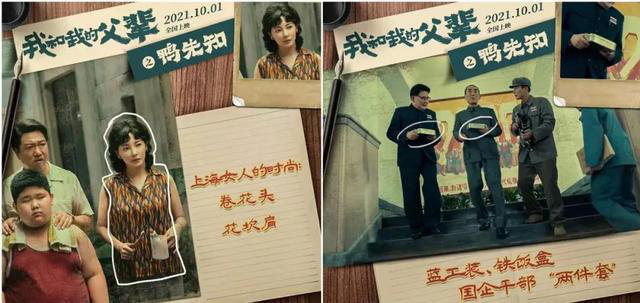 2021.10.01
全国上映
我和我的父辈
之 鸭先知
上海女人的时尚:
卷花头
花坎肩
2021.10.01
全国上映
我和我的父辈
之 鸭先知
蓝工装、铁饭盒
国企干部“两件套”